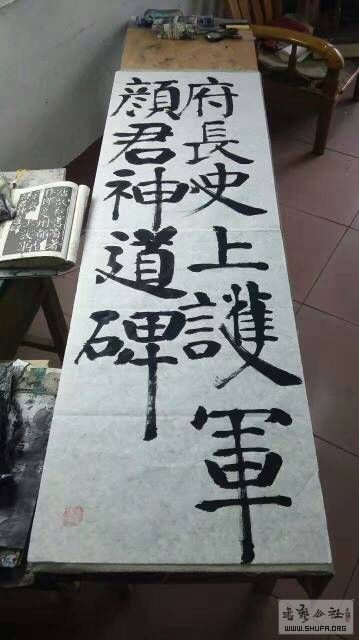 府長史上護軍
顔君神道碑
书艺公社
WWW.SHUFA.ORG